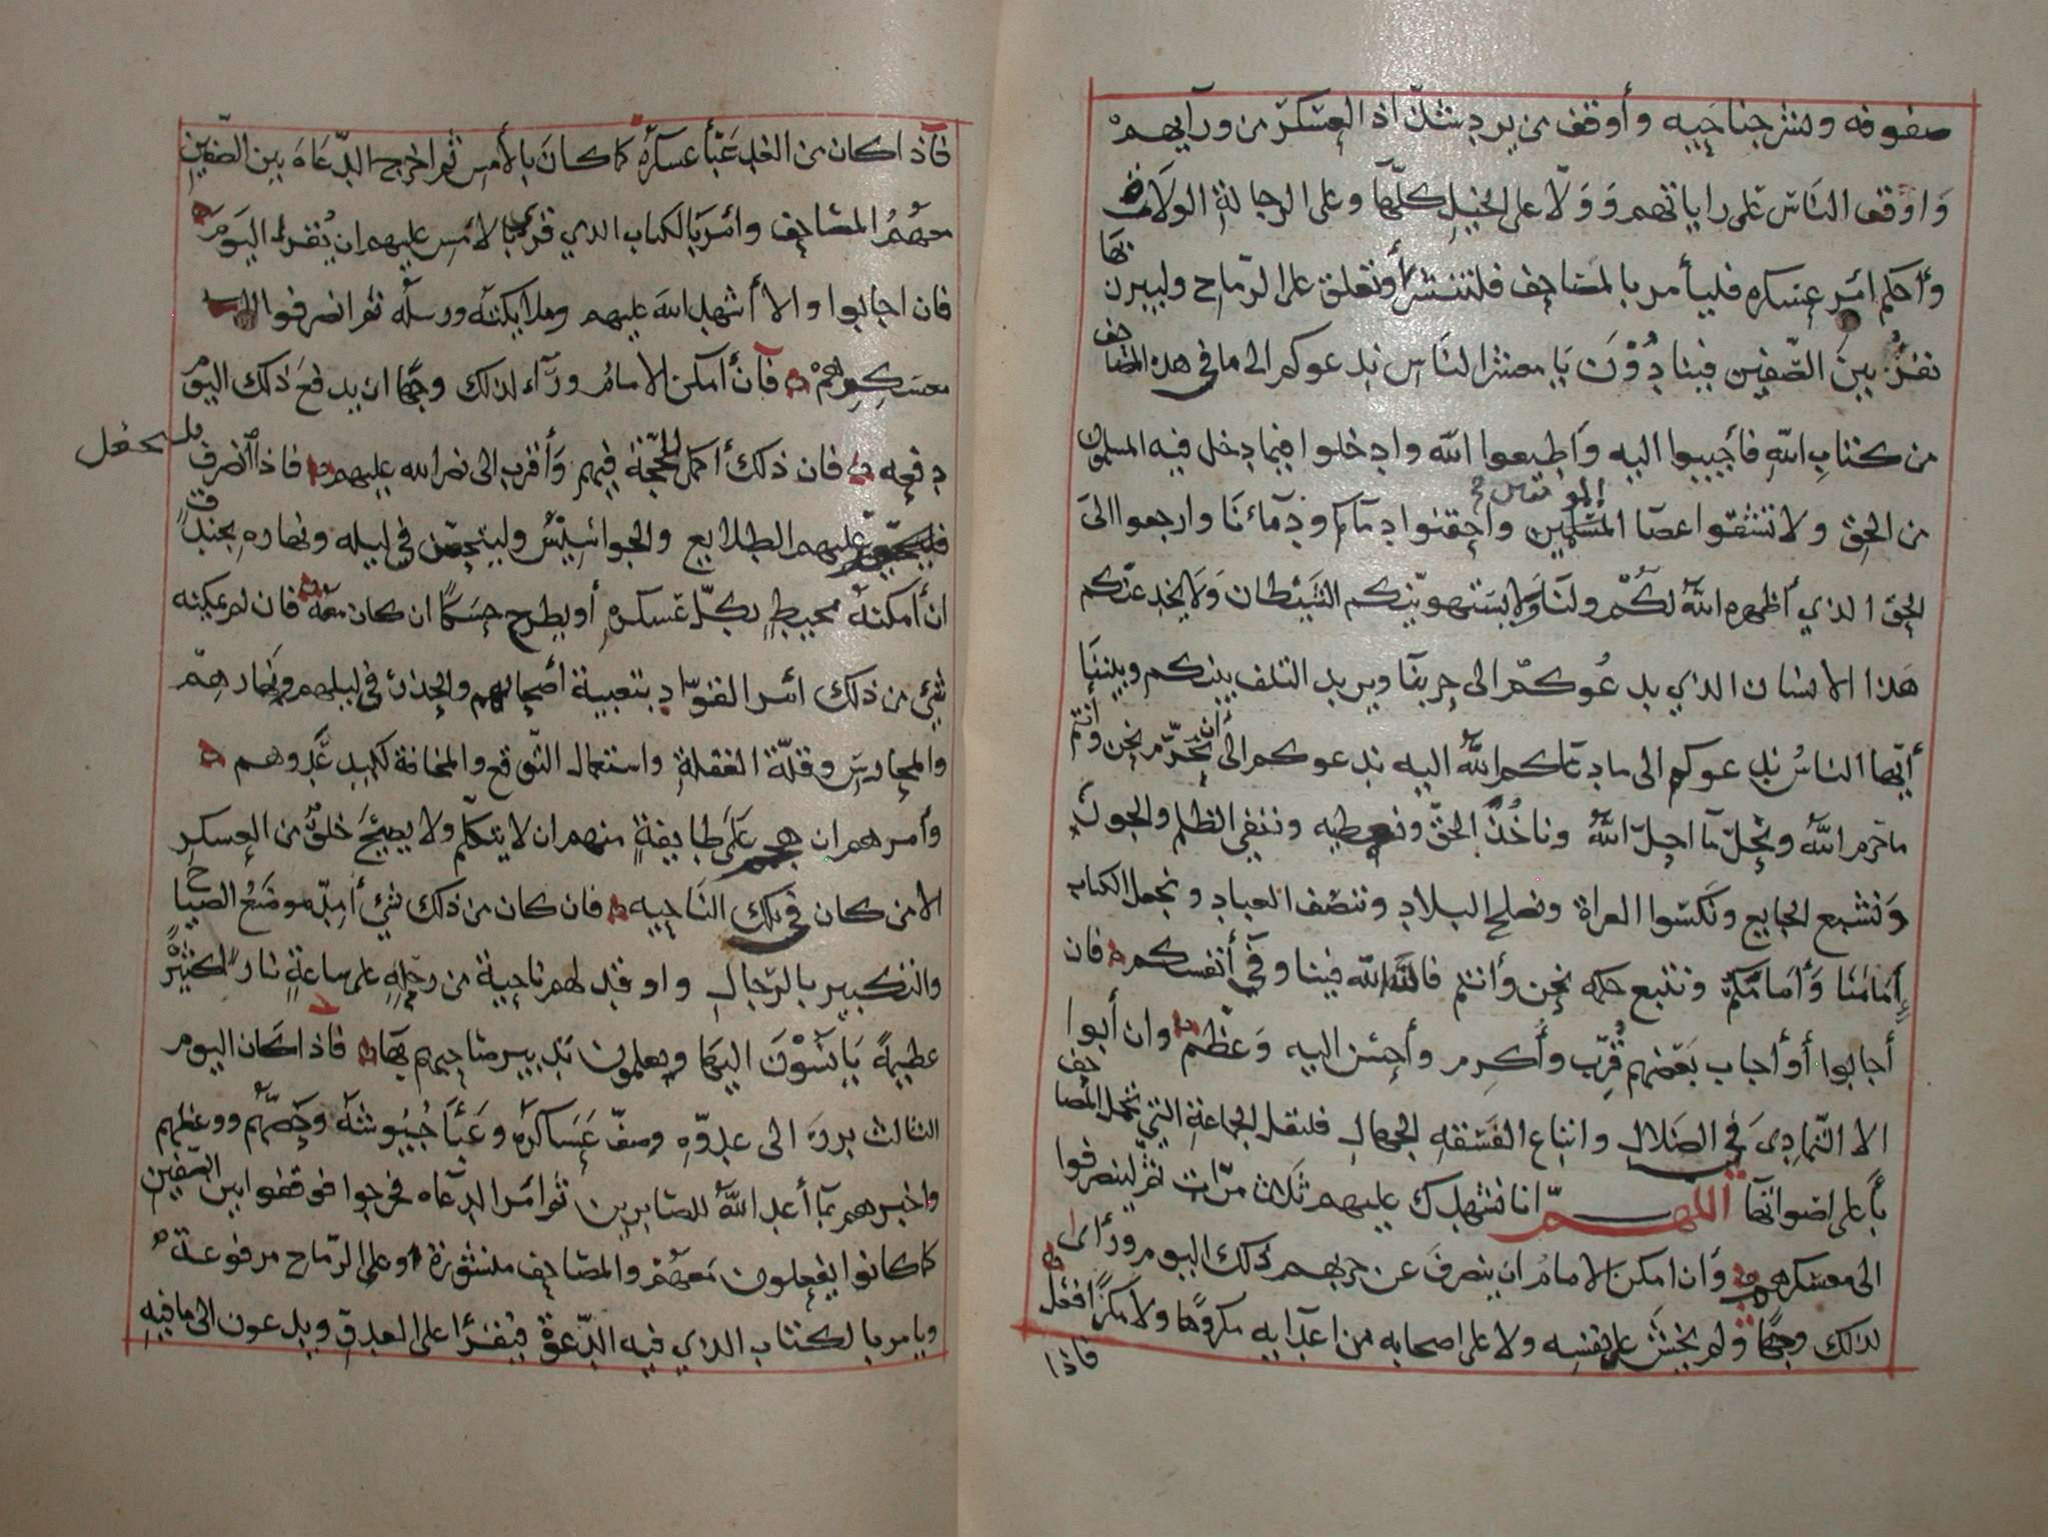 صفوفه وينشر جناحيه وأوقف من يرد شذّاذ العسكر من ورآيهم
وَاوقف النّاسَ على راياتهم وَوَلّا على الخيل كلّها وعلى الرجالةِ الولاة
وأحكم امر عسكره فليأمر بالمصاحف فلتنشر أو تعلق على الرّماح وليبرز بها
نفرٌ بينَ الصّفين فينادُوْنَ يَا معشر النّاس ندعوكم الى ما في هذه المصاحف
من كتابِ اللّهِ فأجيبوا اليه وَاطيعوا اللّه وادخلوا فيما دخل فيه المسلمون
من الحق ولا تشقّوا عصَا المسلمين واحقنوا دمآكم ودِمآءنَا وارجعوا الىَ
الحق الذي أظهره اللّهُ لكُم ولنَا وَلا يستهوينّكم الشَّيْطان وَلا يخدعنّكم
هَذا الانسَان الذي يدعُوكم الى حربنَا ويريد التلف بينكم وبيننَا
أيّها الناسُ ندعوكم الى ما دعَاكم اللّهُ اليه ندعوكم الى أن نحرّم نحن وأنتم
ما حَرم اللّهُ ونحلّ مَا احلّ اللّهُ وناخُذَ الحقّ ونعطيه وننفي الظلم والجورَ
وَنشبع الجايع ونَكسوا العراة ونصلح البلاد وننصف العباد ونجعل الكتاب
إمَامَنَا وَأمَامَكُم ونتبع حكمه نحن وأنتم فاللّهَ اللّه فينا وفي أنفسكم فان
أجابوا أو أجاب بَعضهم قُرِّب وأُكرِم وأحسن اليه وَعظّم وان أبوا
الا التّمادِىَ في الضلالِ واتباع الفسَقهِ الجهال فلتقل الجماعةِ التي تحمل المصاحف
بأعلى اصواتها اللهمّ انا نشهدك عليهم ثَلاث مرّاتٍ ثم لينصرفوا
الى معسكرهم وَان امكن الامامُ ان ينصرفَ عن حربهم ذلك اليوم ورأى
لذلك وجهًا ولم يخش على نفسِه ولا على اصحابه من اعدايه مكروهًا ولا مكرًا فعَلَ
فاذا
فآذا كان من الغد عَبّأ عسكرَهُ كما كانَ بالأمسِ ثم اخرج الدّعَاةَ بين الصّفين
معهُمُ المصَاحف وامَر بالكتاب الذي قرئ بالامس عليهم ان يُقرا اليَوم
فان اجابوا والا أشهد اللّهَ عليهم وملايكتَه ورسلَه ثم انصرفوا الى
معسكرهم فآن أمكن الامامُ ورَآء لذلك وجهًا ان يدفعَ ذلك اليوم
دفعه فان ذلك أكمل للحجّة فيهم وَأقرب الى نصر اللّه عليهم فاذا انصرف
فليحفل
عليهم الطلايع والجواسيْس وليتحصّن في ليله ونهاره بخندقٍ
ان أمكنهُ محيطٍ بكلّ عَسكره أو يطرح حسَكًا ان كان معه فان لم يمكنه
شئ من ذلك امَر القوّاد بتعبية أصحابهم والحذر في ليلهم ونهارهم
والمحارسِ وقلّة الغفلةِ واستعمال التّوقع والمخافة لكيدِ عَدوهم
وأمرهم ان هجم عَلى طايفةٍ منهم ان لا يتكلّم ولا يصيحَ خلقٌ من العسكر
الا من كان في تلك النّاحيه فان كان من ذلك شئ أمدّ موضعُ الصياح
والتكبيرِ بالرّجالِ واوقد لهم ناحية من رحلهِ على ساعةٍ نارًا كثيرةً
عظيمةً يَاتَسُوْنَ اليهَا ويعلمون تدبير صَاحبهم بهَا فاذا كان اليوم
الثالث برزَ الى عدوّه وصفّ عَسَاكره وعَبّأ جُيُوشَهُ وحَضّهُم ووعظهم
واخبرهم بمآ أعد اللّهُ للصّابرين ثم امَر الدّعَاه فخرجوا فوقفوا بين الصّفين
كما كانوا يفعلون مَعهُم والمصَاحف منشورَة او على الرّماح مرفوعَة
ويامر بالكتاب الذي فيه الدّعوَة فيقرَا على العدوّ ويدعون الى ما فيهِ